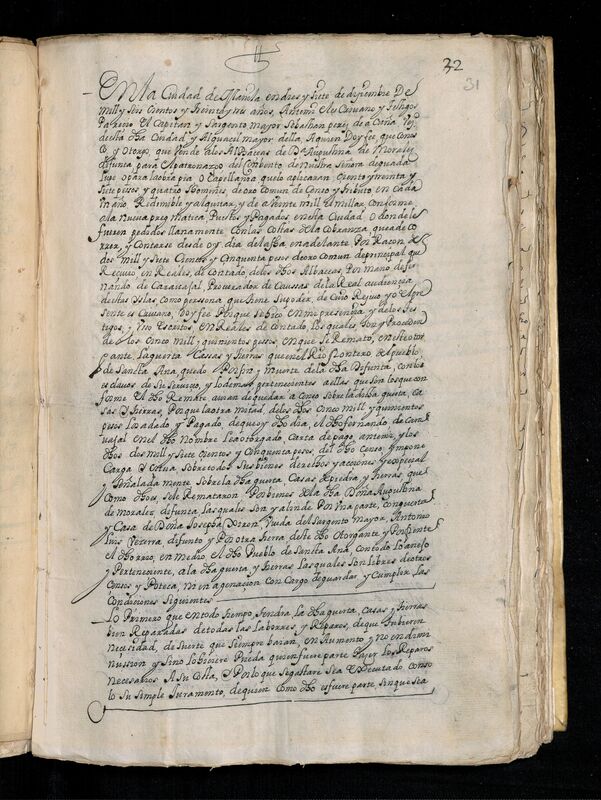 32
31
En la Ciudad de Manila en dies y siete de diziembre De
mill y seis cientos y treinta y nu años, Antemi el escrivano y testigos
Pareçio el Capitan y Sargento mayor Sebastian perez de acuña Rejor
desta dha Ciudad y Alguacil mayor della, Aquien Doy fee que conos
co, y Otorgo, que Vende a los Albaceas de Da Augustina de Morales
difunta, para el Patronazgo del Combento de nuestra señora de guada
lupe o para la obra pia o Capellania que lo aplicaran, Ciento y treinta y
siete pesos y quatro tomines, de oro comun de Censo y tributo en cada
un año, Redimible y alquitar, y de a veinte mill el millar, conforme
a la nueva pregmatica, Puestos y Pagados en esta Ciudad O donde le
fueren pedidos llanamente con las costas de la cobranza, que a de co
rrer, y Contarse desde oy dia de la fha en adelante Por Raçon de
dos mill y siete Cientos y Cinquenta pesos de oro comun de principal que
Recivio en Reales, de contado, de los dhos Albaceas, Por mano de fer
nando, de Caravajal, Procurador de Caussas de la Real audiencia
destas Yslas, como persona que tiene su poder, de cuio Reçivo yo el pre
sente escrivano, Doy fee Porque se hiço en mi pressencia y de los tes
tigos, y vso Escritos, en Reales de contado, los quales, son y Proceden
de los Cinco mill y quinientos pesos, en que se Remato, en este otor
gante, la guerta Cassas y tierras que en el Rio frontero del pueblo
de Sancta Ana, quedo Por fin y muerte de la dha Difunta, con los
esclavos de su serviçio, y lo demas perteneciente a ellas que son los que con
forme el dho Remate avian de quedar a censo sobre la dha guerta, ca
sas y tierras, Porque la otra mitad, de los dhos cinco mill y quinientos
pesos los a dado y Pagado, de que oy dho dia, el dho fernando, de Cara
vajal en el dho Nombre le a otorgado carta de pago antemi, y los
dhos dos mill y siete cientos y cinquenta pesos, del dho censo, Impone
Carga y Situa, sobre todos sus bienes derechos y acciones y expecial
y señaladamente Sobre la dha guerta Casas de piedra, y tierras, que
como dho es, se le Remataron Por bienes de la dha Doña Augustina
de morales, difunta, las quales son y alinde Por una parte, con guerta
y Casa de Doña Josepha Viuda del Sargento mayor, Antonio
difunto, y Por otra tierra deste dho Otorgante y Por frente
el dho rrio, en medio, el dho Pueblo de Sancta Ana, con todo lo anejo
y Perteneciente, a la dha guerta, y tierras, las quales son libres de otros
censos y Poteca, ni enagenacion con cargo de guardar y Cumplir las
condiciones siguientes
Lo Primero que en todo tiempo, tendra la dha guerta, casas y tierras
bien Reparadas de todas las Labores, y Reparos, de que tubieren
necesidad, de suerte que siempre baian, en aumento y no en dimi
nusion y Sino lo hiciere Pueda quien fuere parte haçer los Reparos
necesarios A su Costa, y Por lo que se gastare sea Executado con so
lo su simple Juramento, de quien Como dho es fuere parte, sin que sea